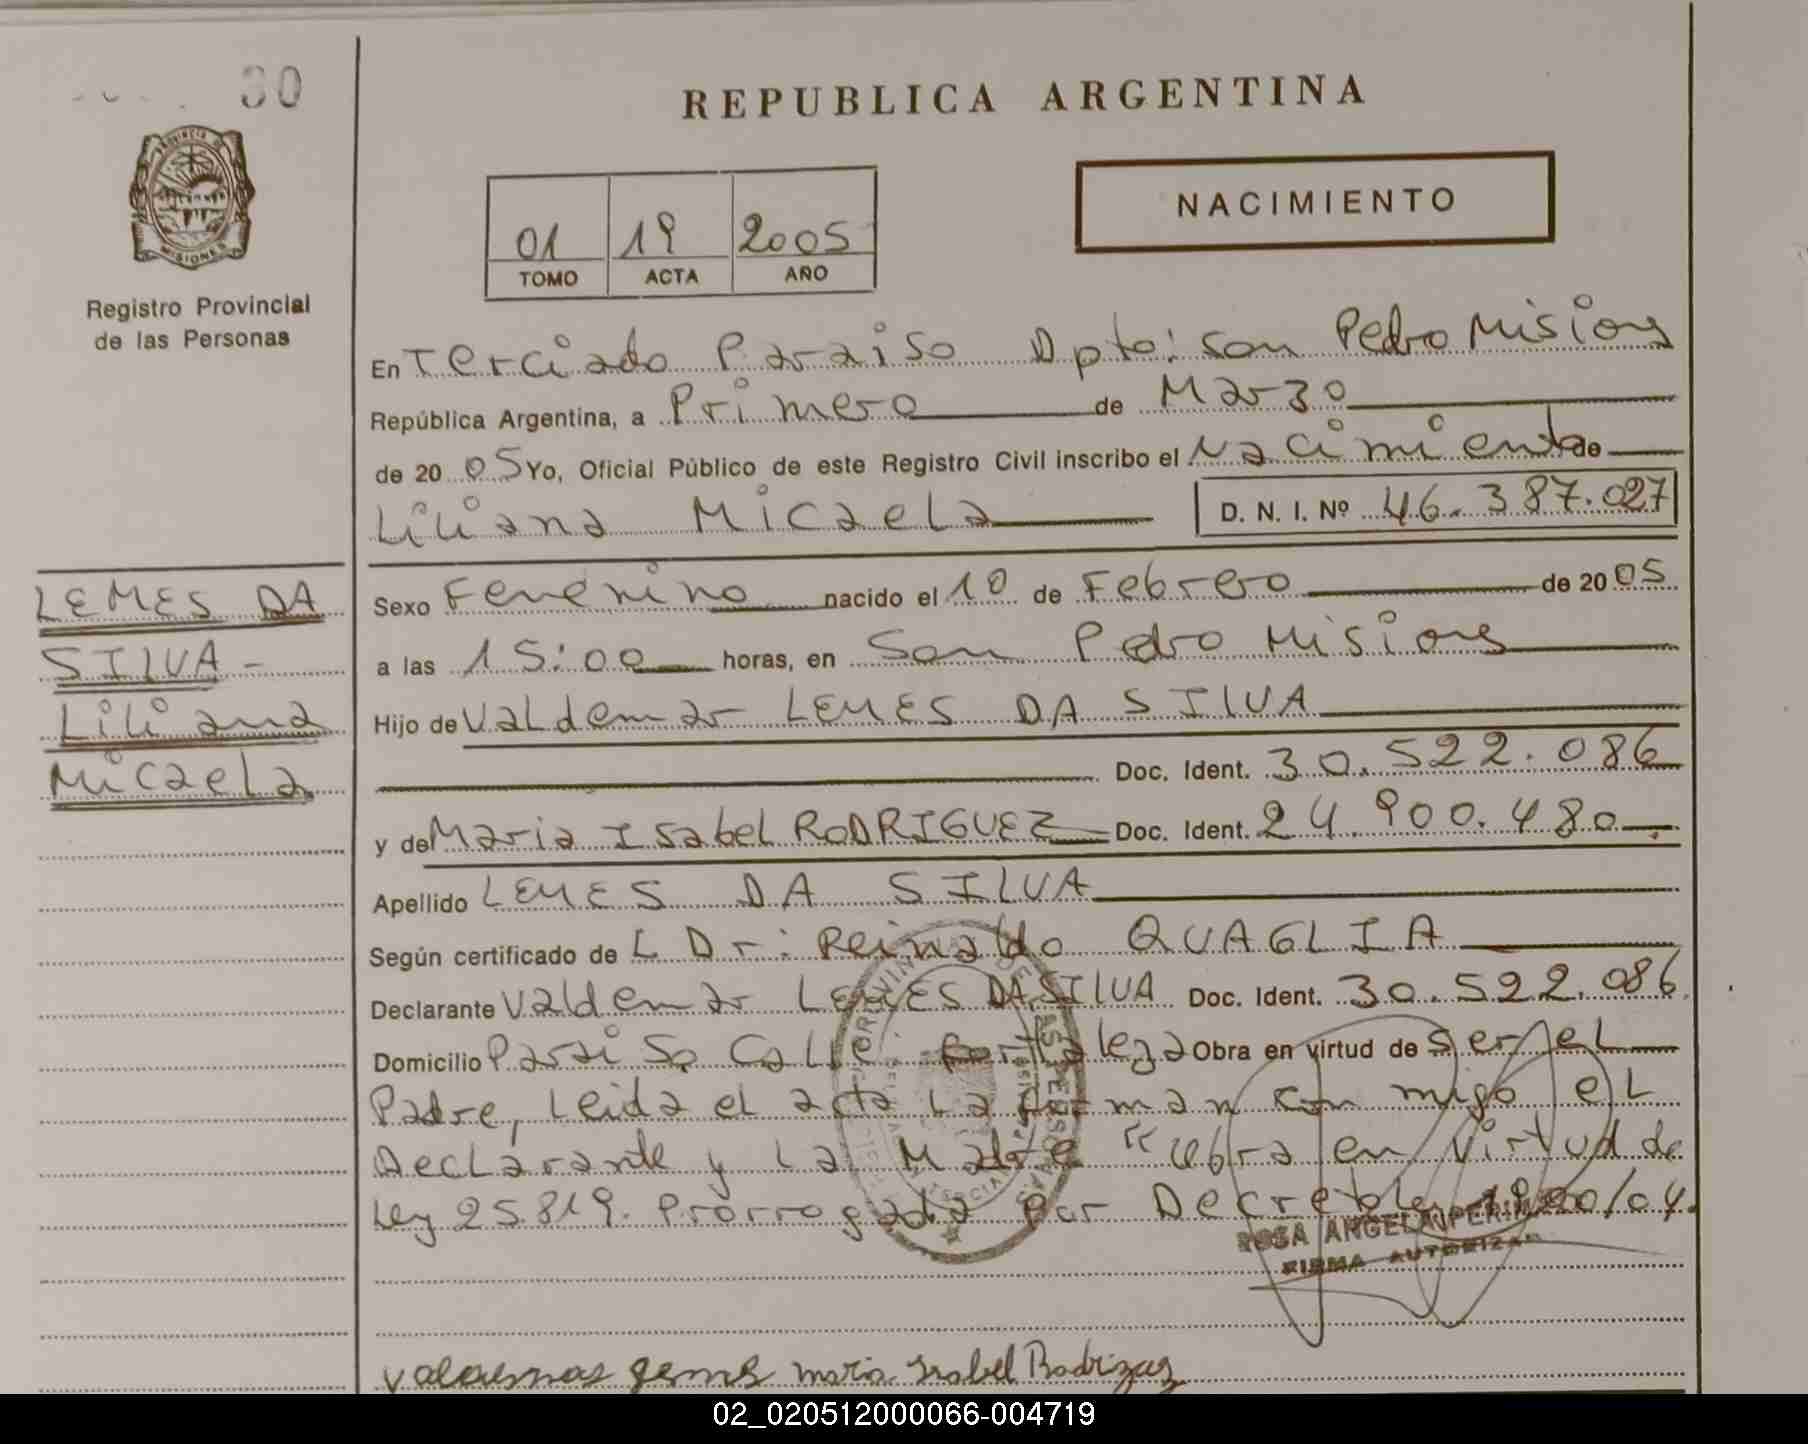 30
REPUBLICA ARGENTINA
NACIMIENTO
01 19 2005
TOMO ACTA AÑO
PROVINCIA DE
MISIONES
Registro Provincial
de las Personas
En Terciado Paraiso Dpto: San Pedro Misiones
República Argentina, a Primero de Marzo
de 20 05 Yo, Oficial Público de este Registro Civil inscribo el Nacimiento de
Liliana Micaela D. N. I. Nº 46.387.027
LEMES DA
SILVA -
Liliana
Micaela
Sexo Femenino nacido el 10 de Febrero de 20 05
a las 15:00 horas, en San Pedro Misiones
Hijo de Valdemar LEMES DA SILVA
Doc. Ident. 30.522.086
y de Maria Isabel RODRIGUEZ Doc. Ident. 24.900.480
Apellido LEMES DA SILVA
Según certificado de L Dr: Reinaldo QUAGLIA
Declarante Valdemar LEMES DA SILVA Doc. Ident. 30.522.086
Domicilio Paraiso Calle: Fortaleza Obra en virtud de Ser el
Padre, Leida el acta La Forman con migo el
Declarante y La Madre "obra en Virtud de
Ley 25.819. Prorrogada Por Decreto
ROSA ANGELA
FIRMA AUTORIZADA
Maria Isabel Rodriguez
02_020512000066-004719